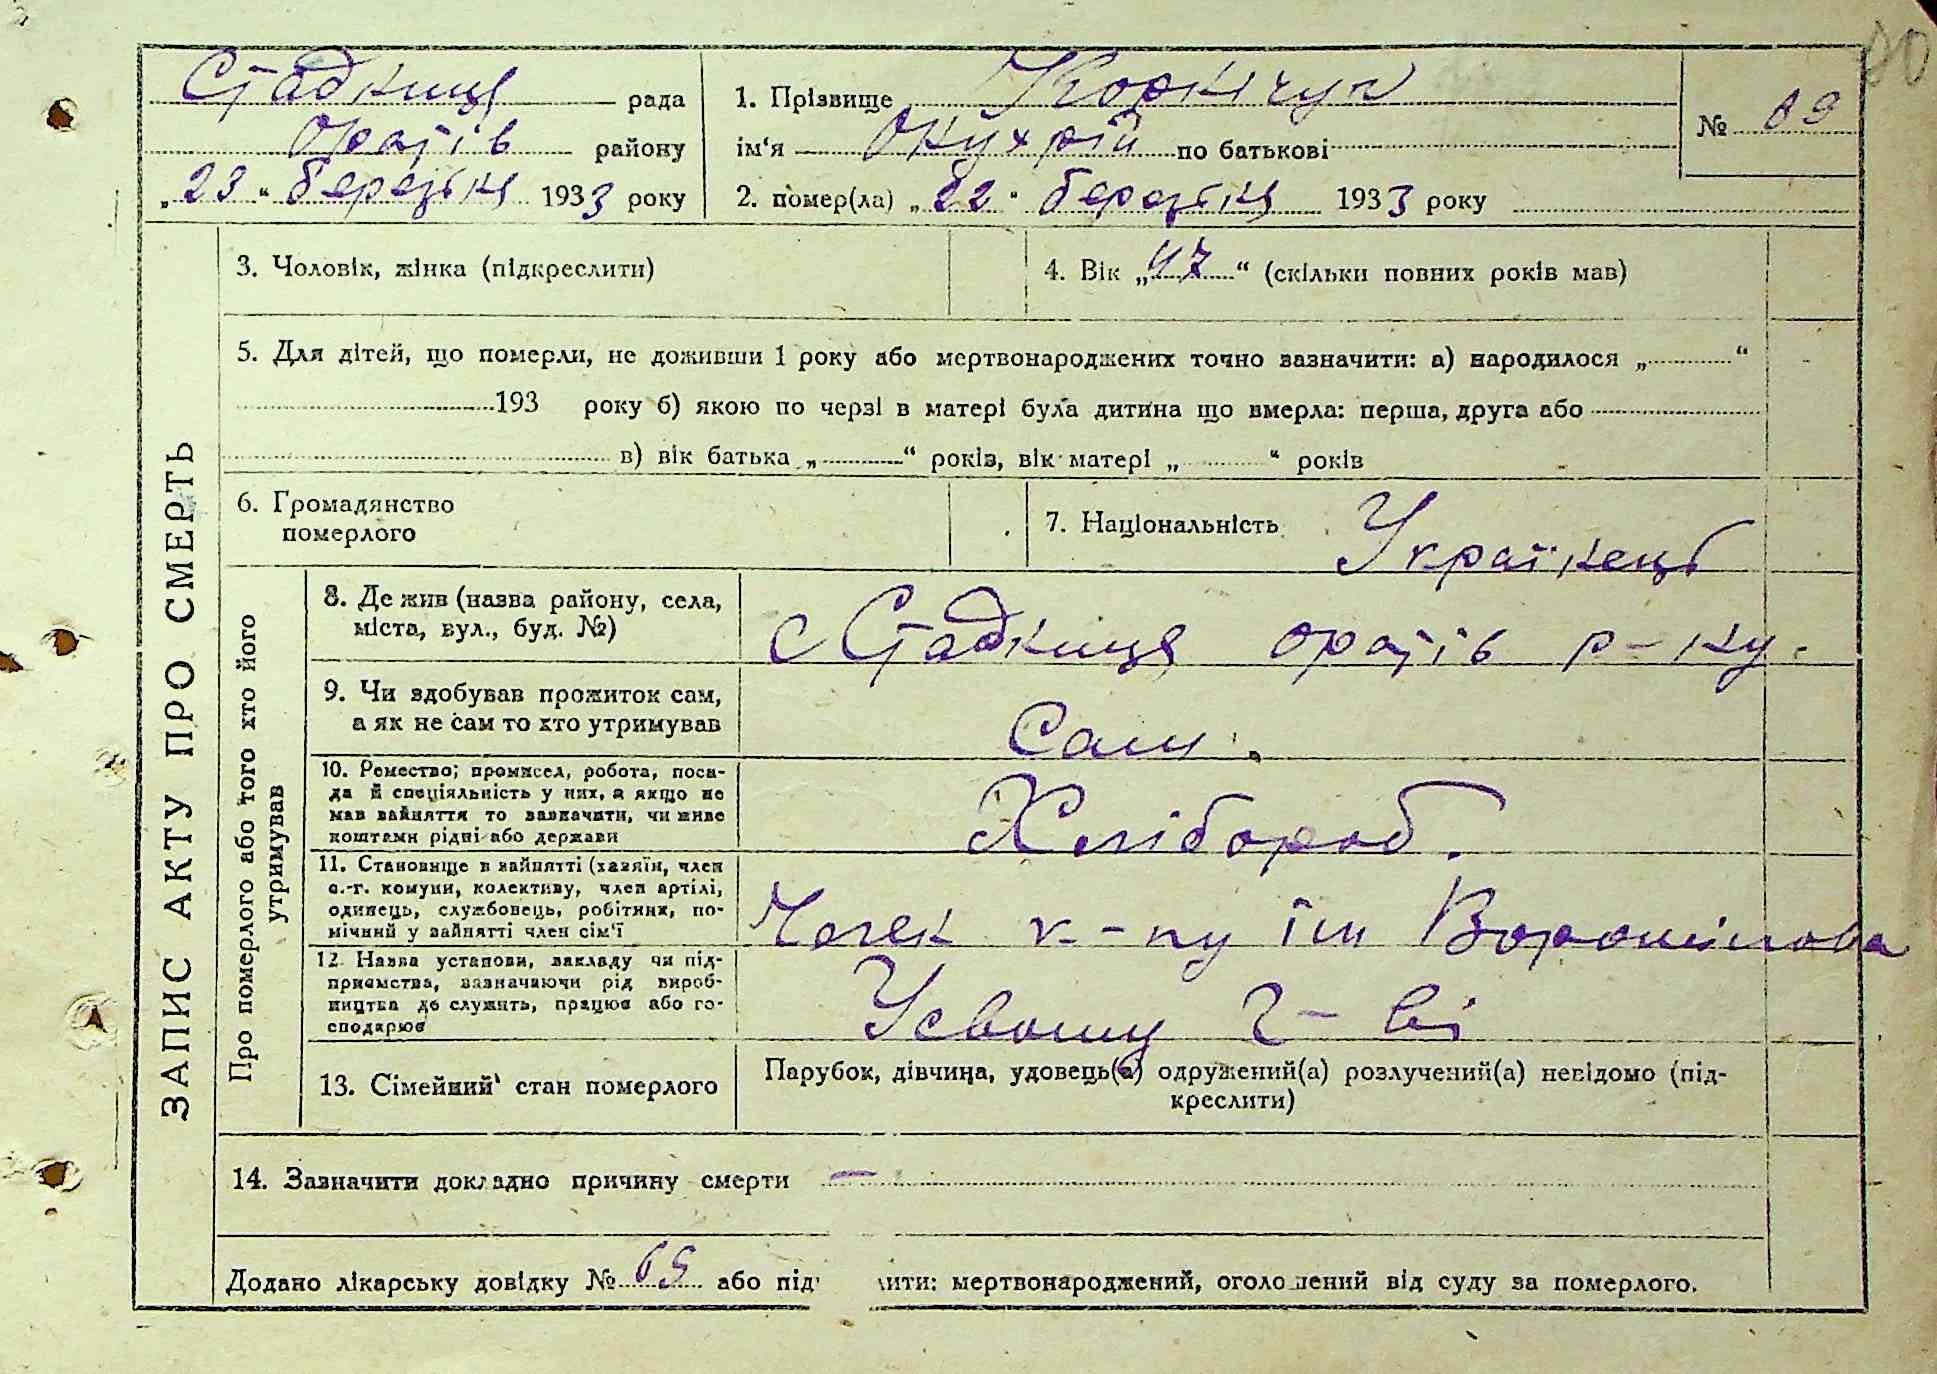 Стадниця рада
Оратів району
„23“ березня 1933 року
1. Прізвище Корнічук
ім‘я Онухрій по батькові
2. помер(ла) „22“ березня 1933 року
№ 69
ЗАПИС АКТУ ПРО СМЕРТЬ
3. Чоловік, жінка (підкреслити)
4. Вік „47“ (скільки повних років мав)
5. Для дітей, що померли, не доживши 1 року або мертвонароджених точно зазначити: а) народилося „ “
193 року б) якою по черзі в матері була дитина що вмерла: перша, друга або
в) вік батька „ “ років, вік матері „ “ років
6. Громадянство
померлого
7. Національність Українець
Про померлого або того хто його
утримував
8. Де жив (назва району, села,
міста, вул., буд. №)
с Стадниця оратів р-ну.
9. Чи здобував прожиток сам,
а як не сам то хто утримував
Сам.
10. Ремество; промисел, робота, поса-
да й спеціяльність у них, а якщо не
мав зайняття то зазначити, чи живе
коштами рідні або держави
Хлібороб.
11. Становище в зайнятті (хазяїн, член
с.-г. комуни, колективу, член артілі,
одинець, службовець, робітник, по-
мічний у зайнятті член сім‘ї
Член к-пу ім Ворошилова
12. Назва установи, закладу чи під-
приємства, зазначаючи рід вироб-
ництва де служить, працює або го-
сподарює
Усвому г-ві
13. Сімейний стан померлого
Парубок, дівчина, удовець(а) одружений(а) розлучений(а) невідомо (під-
креслити)
14. Зазначити докладно причину смерти —
Додано лікарську довідку № 69 або під ити: мертвонароджений, оголо ений від суду за померлого.